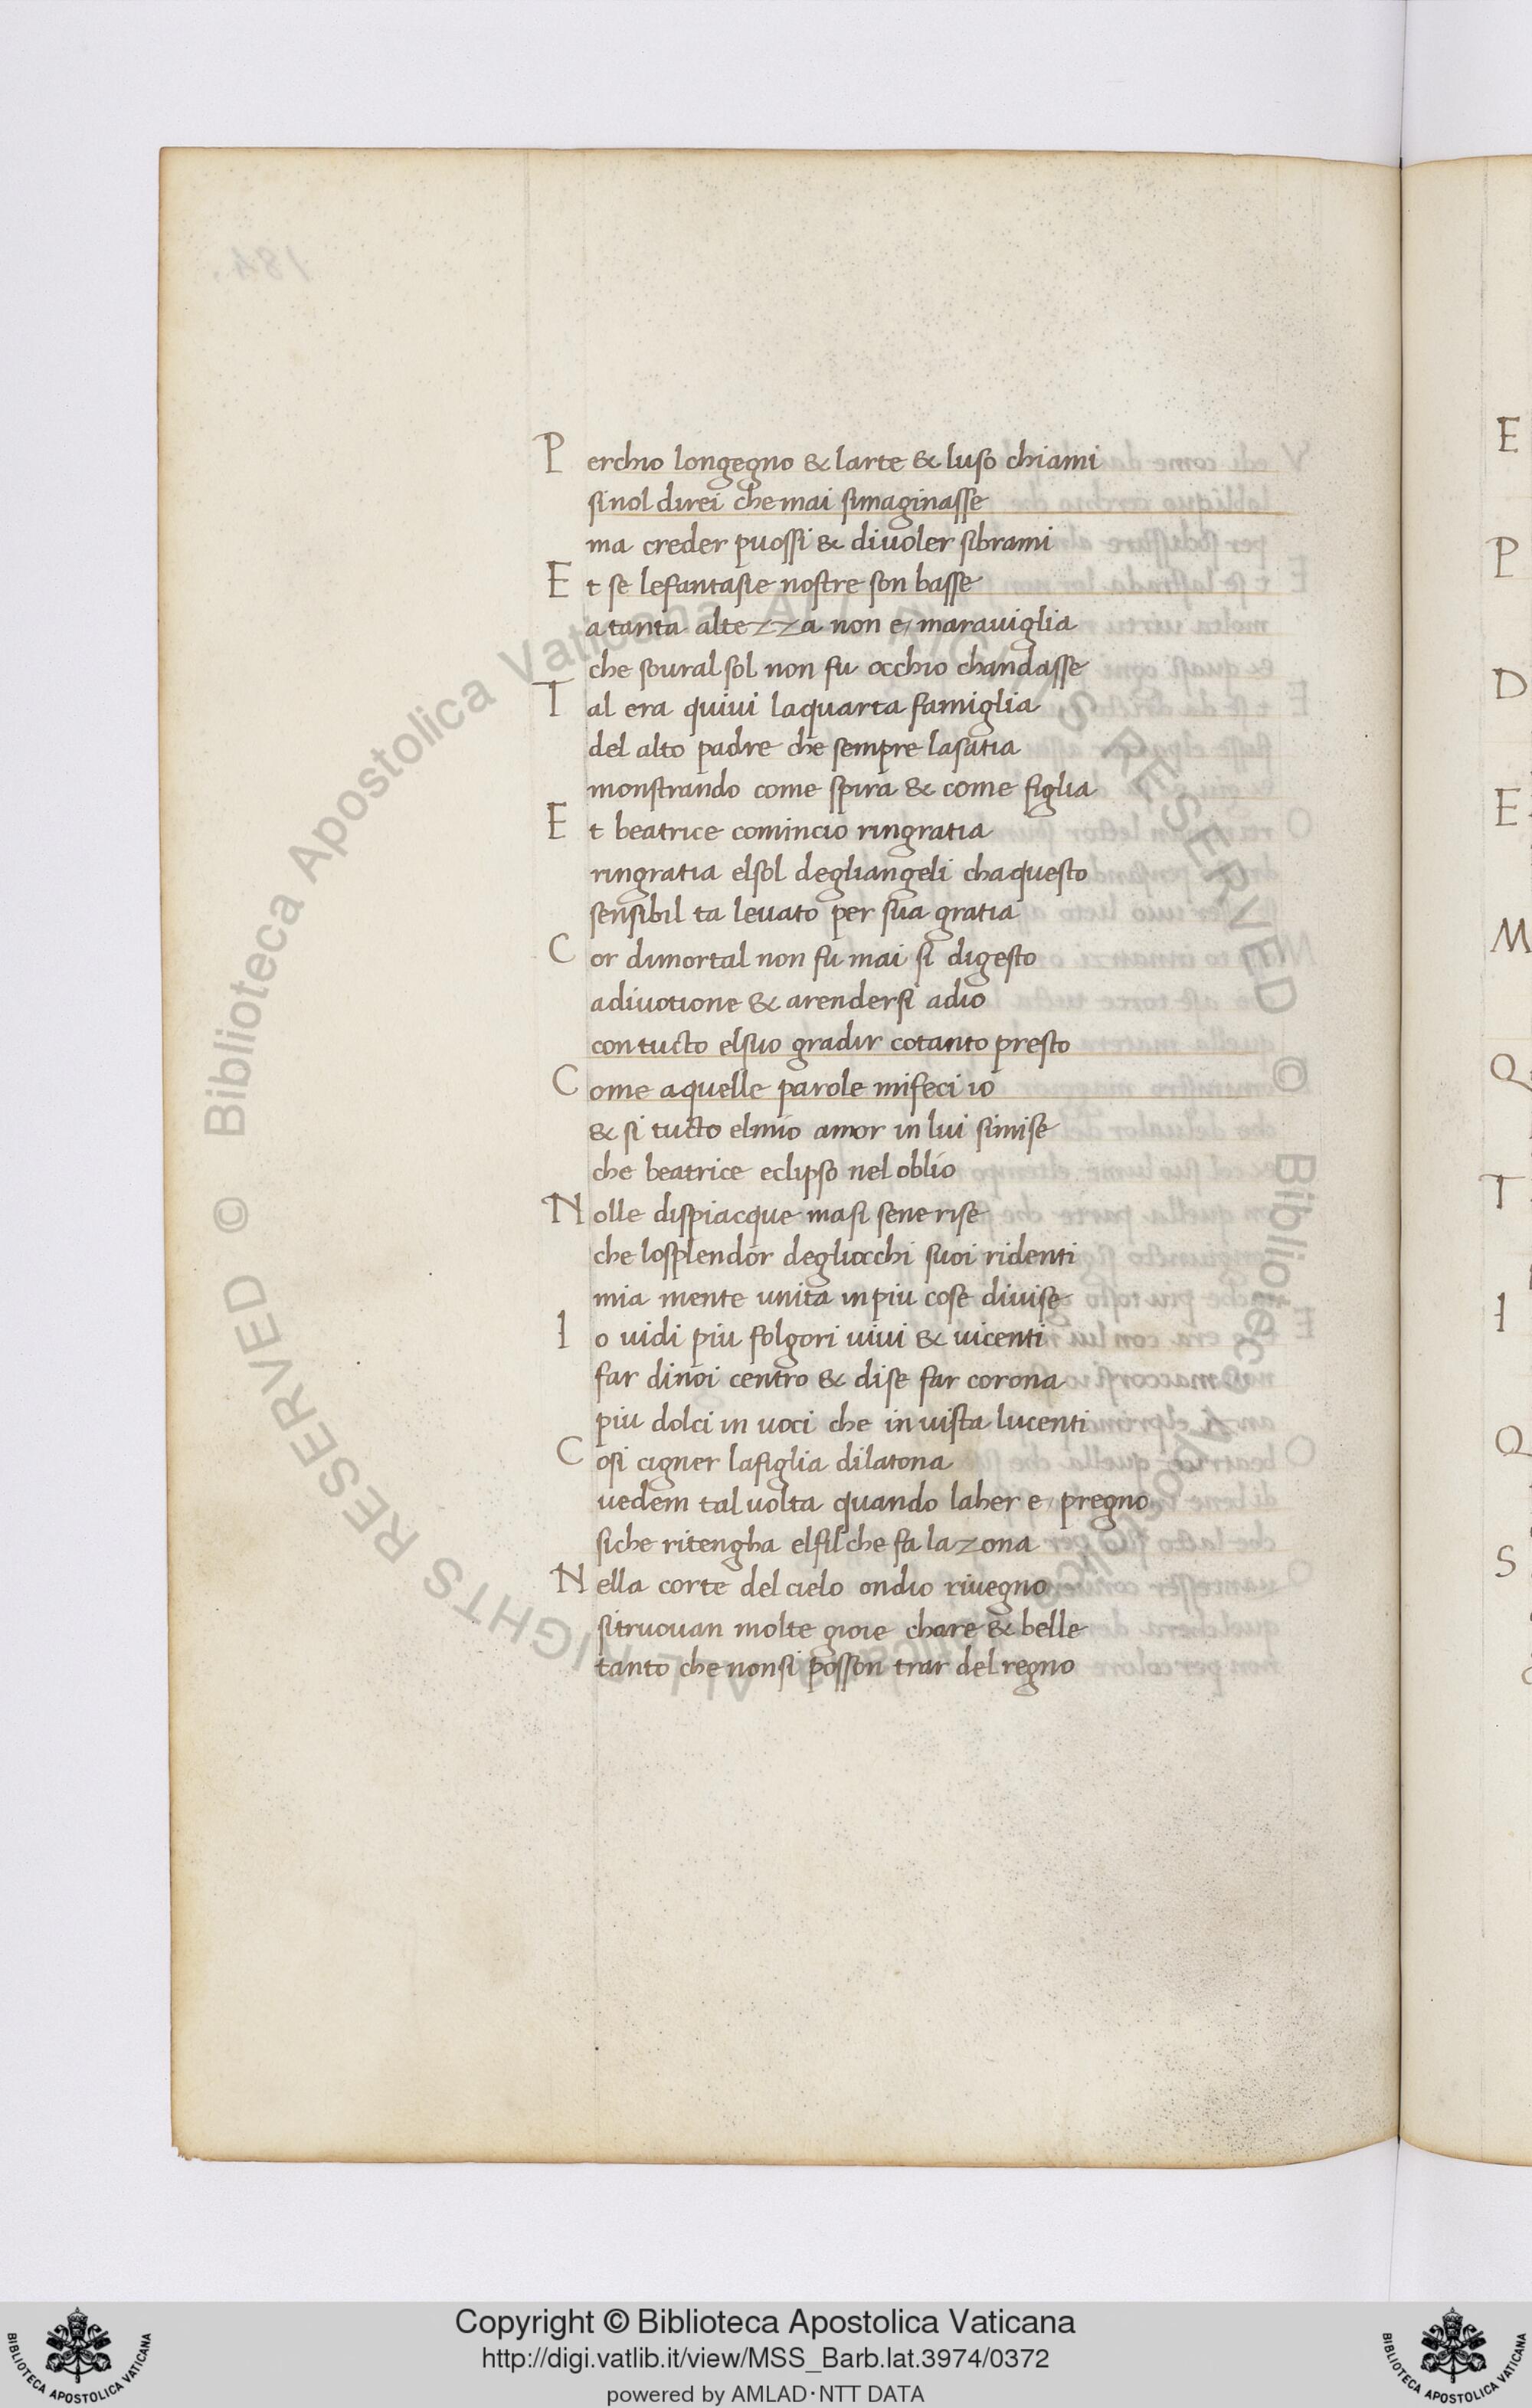 Perchio longegno & larte & luso chiami
si nol direi che mai simaginasse
ma creder puossi & di uoler si brami
Et se le fantasie nostre son basse
a tanta altezza non e maraviglia
che soural sol non fu occhio chandasse
Tal era quiui la quarta famiglia
del alto padre che sempre la satia
monstrando come spira & come figlia
Et beatrice comincio ringratia
ringratia el sol degli angeli cha questo
sensibil ta leuato per sua gratia
Cor di mortal non fu mai si digesto
a diuotione & a rendersi a dio
con tucto el suo gradir cotanto presto
Come a quelle parole mi feci io
& si tucto el mio amor in lui si mise
che beatrice eclipso nel oblio
Nolle dispiacque ma si se ne rise
che lo splendor degliocchi suoi ridenti
mia mente unita in piu cose diuise
Io uidi piu folgori uiui & uicenti
far di noi centro & di se far corona
piu dolci in uoci che in uista lucenti
Cosi cigner la figlia di latona
uedem tal uolta quando laher e pregno
si che ritengha el fil che fa la zona
Nella corte del cielo ondio riuegno
si truouan molte gioie chare & belle
tanto che non si posson trar del regno
E
P
D
E
M
Q
T
I
Q
S
184
© Biblioteca Apostolica Vaticana ALL RIGHTS RESERVED © Biblioteca Apostolica Vaticana ALL RIGHTS RESERVED
Copyright © Biblioteca Apostolica Vaticana
http://digi.vatlib.it/view/MSS_Barb.lat.3974/0372
powered by AMLAD·NTT DATA
BIBLIOTECA APOSTOLICA VATICANA
BIBLIOTECA APOSTOLICA VATICANA